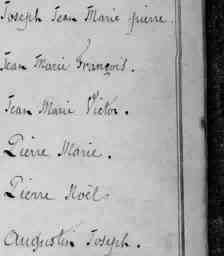 Joseph Jean Marie pierre.
Jean Marie François.
Jean Marie Victor.
Pierre Marie.
Pierre Noël
Augustin Joseph.